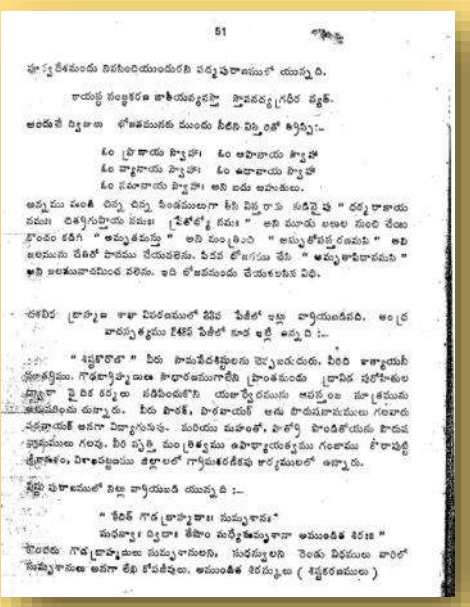 51
దేశమందు నివసించియుందురని పద్మపురాణములో యున్నది.
కాయస్థ సంజ్ఞకరణ జాతీయవ్యవస్థా
అందుచే ద్విజులు భోజనమునకు ముందు నీటిని విస్తరితో త్రిప్పి:..
ఓం ప్రాణాయ స్వాహా। ఓం అపానాయ స్వాహా
ఓం వ్యానాయ స్వాహా। ఓం ఉదానాయ స్వాహా
ఓం సమానాయ స్వాహా। అని ఐదు ఆహుతులు.
అన్నము నుంచి చిన్న చిన్న పిండములుగా తీసి విస్తరాకు కుడివైపు " ధర్మ రాజాయ
నమః చిత్రగుప్తాయ నమః ప్రేతేభ్యో నమః " అని మూడు బణల నుంచి చేయి
కొంచం కడిగి " అమృతమస్తు " అని మంత్రించి " అమృతోపస్తరణమసి " అని
జలమును చేతితో పానము చేయవలెను. పిదప భోజనము చేసి " అమృతాపిధానమసి "
అని జలమునాచమించ వలెను. ఇది భోజనమందు చేయవలసిన విధి.
దశవిధ బ్రాహ్మణ శాఖా వివరణములో పేజీలో ఇట్లు వ్రాయబడినది. ఆంధ్ర
వాచస్పత్యము పేజీలో కూడ ఇట్లే ఉన్నది :..
" శిష్టకరౌణా " వీరు సామవేదశిష్టులను చెప్పబడుదురు. వీరిది కాత్యాయనీ
సూత్రము. గౌడబ్రాహ్మణులు సాధారణముగాలేని ప్రాంతమందు ద్రావిడ పురోహితుల
ద్వారా వైదిక కర్మలు నడిపించుకొని యజుర్వేదమును ఆపస్తంబ సూత్రమును
అనుసరించు చున్నారు. వీరు పాఠక్, అను పౌరుషనామములు గలవారు
అనగా విద్యాగురువు. మరియు మహంతో, పాత్రో పౌండితోయను పౌరుష
నామములు గలవు. వీరి వృత్తి మంత్రిత్వము ఉపాధ్యాయత్వము గంజాము కొరాపుట్టి
శ్రీకాకుళం, విశాఖపట్టణము జిల్లాలలో గ్రామకరణీకపు కార్యములలో ఉన్నారు.
పురాణములో నిట్లు వ్రాయబడి యున్నది :..
" కేచిత్ గౌడ బ్రాహ్మణాః సుమృశానః"
మధన్వాః ద్విధాః తేషాం మధ్యే సుమృశానా అముండిత శిరః "
కొందరు గౌడ బ్రాహ్మణులు సుమృశానులని, సుధన్వులని రెండు విధములు వారిలో
సుమృశానులు అనగా లేఖ కోపజీవులు. అముండిత శిరస్కులు ( శిష్టకరణములు )